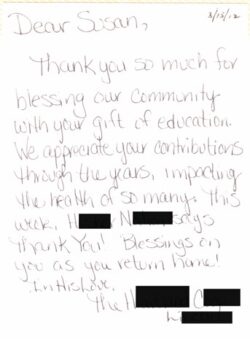 Dear Susan,
8/13/12
Thank you so much for
blessing our community
with your gift of education.
We appreciate your contributions
through the years, impacting
the health of so many. This
week, H N says
Thank You! Blessings on
you as you return home!
In His Love,
The H C